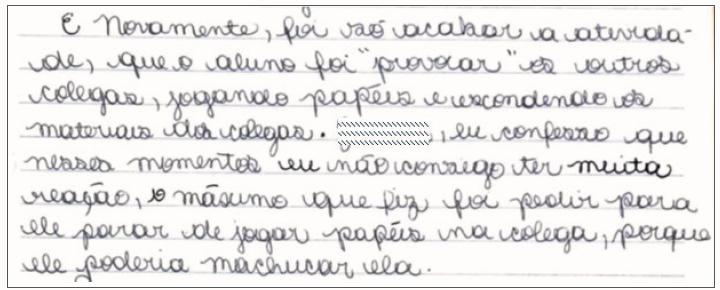 E Novamente, foi só acabar a ativida-
de, que o aluno foi "provocar" os outros
colegas, jogando papéis e escondendo os
materiais dos colegas. , eu confesso que
nesses momentos eu não consigo ter muita
reação, o máximo que fiz foi pedir para
ele parar de jogar papéis na colega, porque
ele poderia machucar ela.